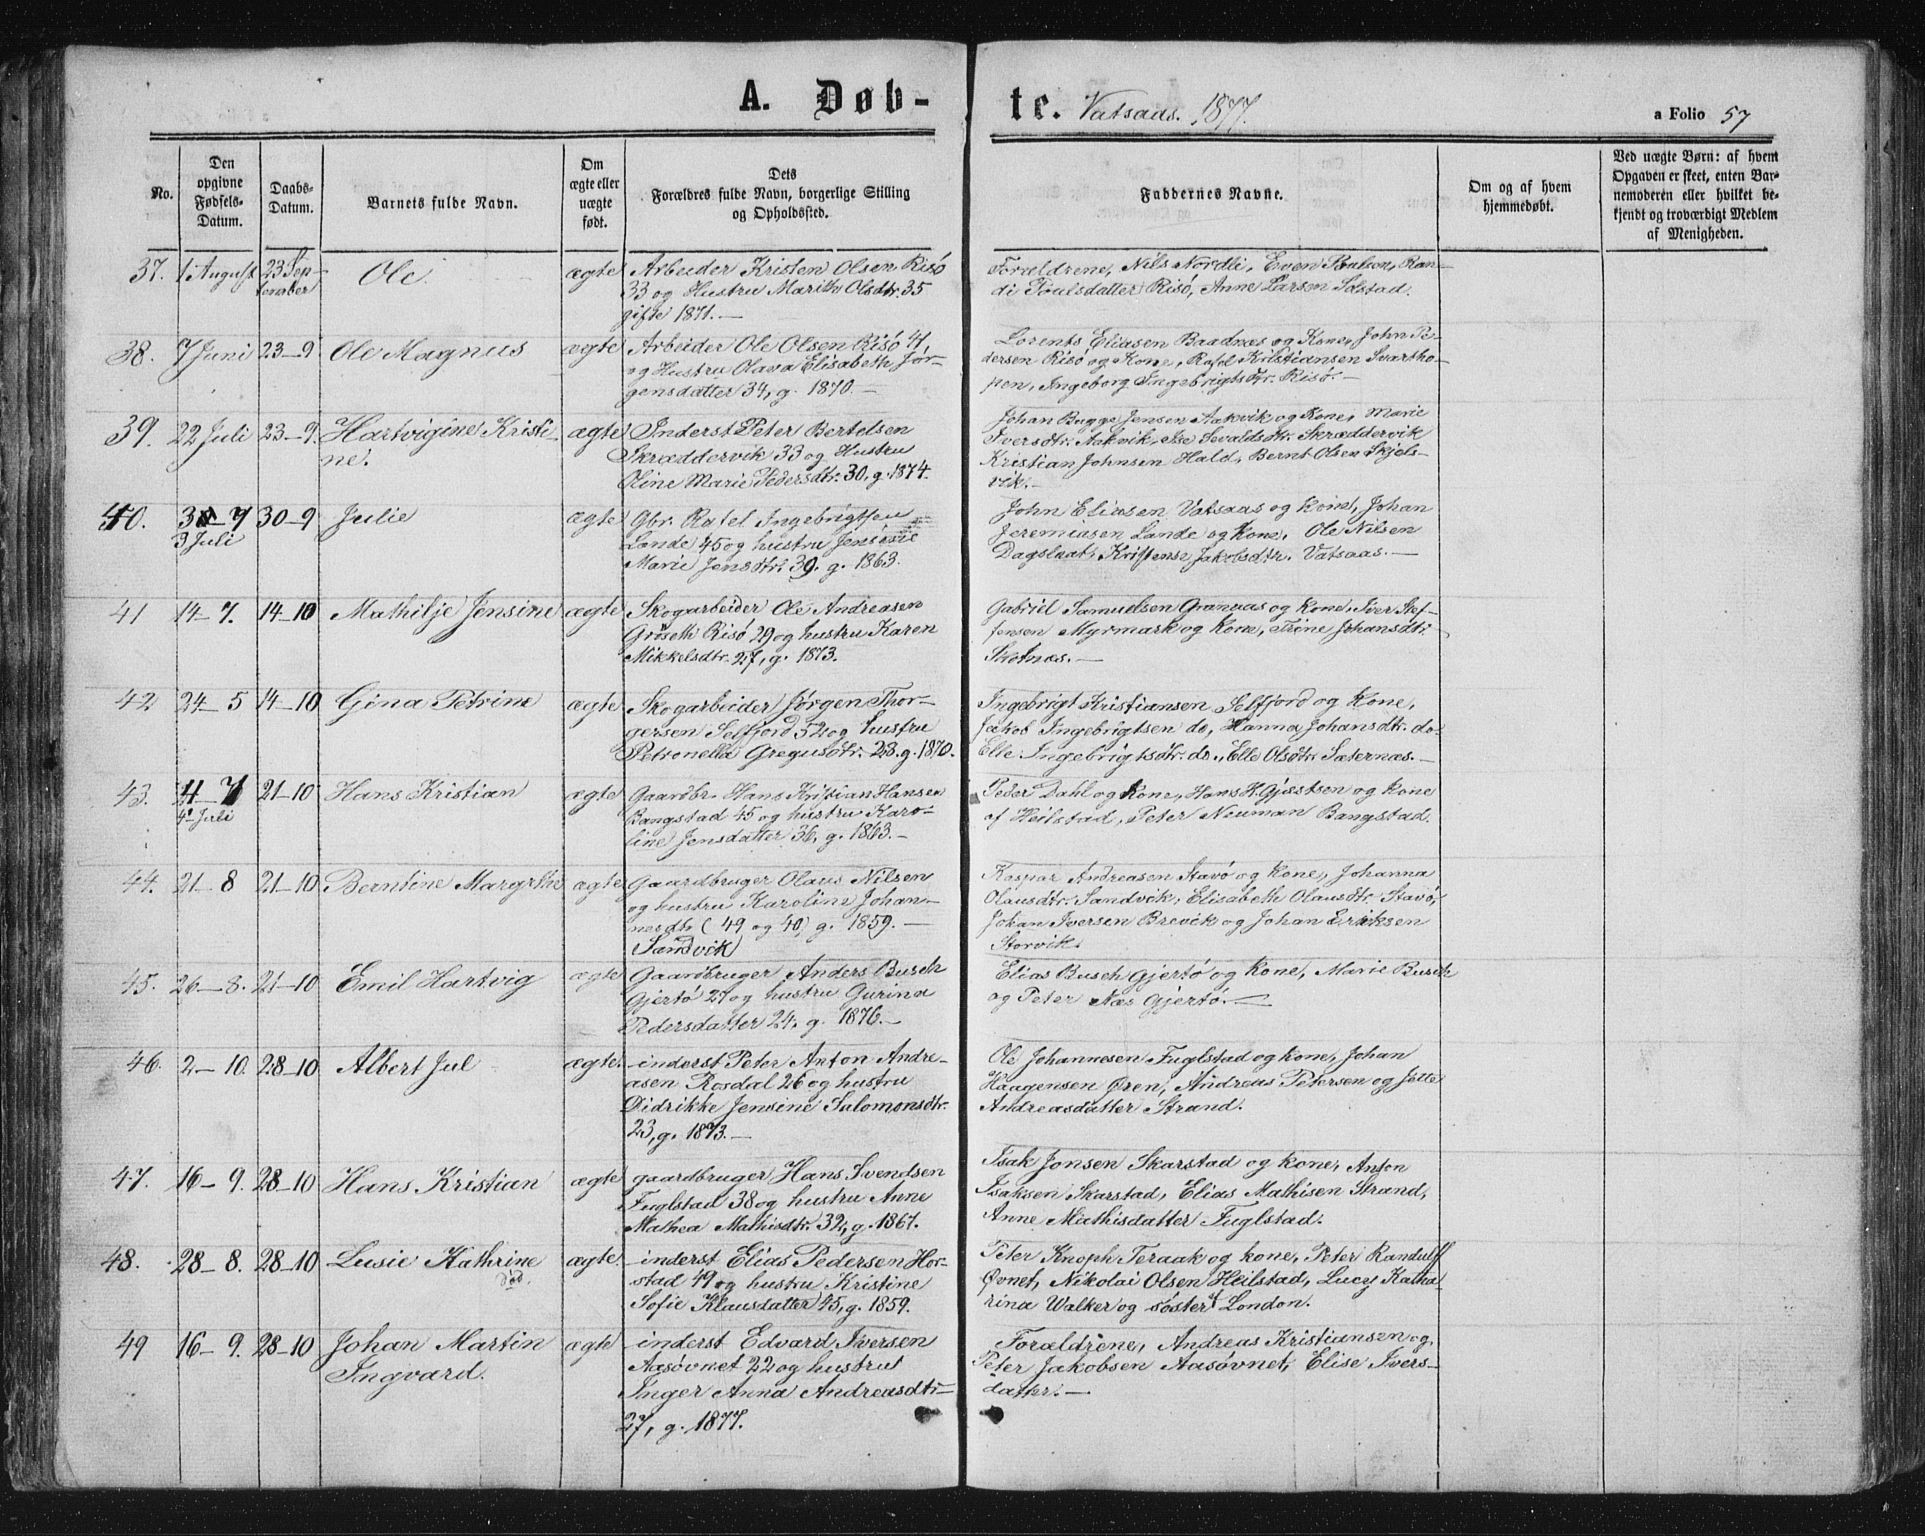 A. Døb-
te. Vatsaas. 1877.
a Folio 57
No.
Den opgivne Fødsels-Datum.
Daabs-Datum.
Barnets fulde Navn.
Om ægte eller uægte født.
Dets
Forældres fulde Navn, borgerlige Stilling
og Opholdssted.
Faddernes Navne.
Om og af hvem
hjemmedøbt.
Ved uægte Børn: af hvem
Opgaven er skeet, enten Bar-
nemoderen eller hvilket be-
kjendt og troværdigt Medlem
af Menigheden.
37. 1 August 23 Sep- Ole. ægte Arbeider Kristen Olsen Risö
tember 33 og Hustru Marith Olsdtr. 35
gifte 1871.—
Forældrene, Nils Nordli, Even Poulson, Ran-
di Poulsdatter Risö, Anne Larsen Solstad.
38. 7 Juni 23-9 Ole Magnus ægte Arbeider Ole Olsen Risö 41,
og Hustru Olava Elisabeth Jör-
gensdatter 34, g. 1870.—
Lorents Eliasen Baadnæs og Kone, John Pe-
dersen Risö og Kone, Kristiansen Svartho-
pen, Ingeborg Ingebrigtsdtr. Risö.—
39. 22 Juli 23-9. Hartvigine Kristi- ægte Inderst Peter Bertelsen
ne. Skræddervik 33 og Hustru
Oline Marie Pedersdtr. 30, g. 1874.
Johan Bugge Jensen Aakvik og Kone, Marie
Iversdtr. Aakvik, Sevaldsdtr. Skræddervik
Kristian Johnsen Hald, Bernt Olsen Skjels-
vik.—
40. 3-7 30-9 Julie ægte Gbr. Rafel Ingebrigtsen
3 Juli Lande 45 og hustru Jensine
Marie Jensdtr. 39. g. 1863.
John Eliasen Vatsaas og Kone, Johan
Jeremiasen Lande og Kone, Ole Nilsen
Dagslaat, Kristense Jakobsdtr. Vatsaas.—
41 14-7. 14-10 Mathilje Jensine ægte Skogarbeider Ole Andreasen
Gröseth Risö 29 og hustru Karen
Mikkelsdtr. 27, g. 1873.
Gabriel Samuelsen Grannas og Kone, Iver Stef-
fensen Myrmark og Kone, Trine Johansdtr.
Skotnæs.—
42 24-5 14-10 Gina Petrine ægte Skogarbeider Jørgen Thor-
gersen Selfjord 52 og hustru
Petronella Gregusdtr. 28. g. 1870.
Ingebrigt Kristiansen Selfjord og Kone,
Jakob Ingebrigtsen do, Hanna Johansdtr. do
Elle Ingebrigtsdtr. do., Elle Olsdtr. Sæternæs.—
43. 4-7 21-10 Hans Kristian ægte Gaardbr. Hans Kristian Hansen
4de Juli Bangstad 45 og hustru Karo-
line Jensdatter 36, g. 1863.—
Peder Dahl og Kone, Hans K. Gjæstsen og kone
af Heilstad, Peter Neuman Bangstad.
44. 21-8 21-10 Berntine Margrthe ægte Gaardbruger Olaus Nilsen
og hustru Karoline Johan-
nesdtr (49 og 40) g. 1859.—
Sandvik
Kaspar Andreasen Stavö og Kone, Johanna
Olausdtr. Sandvik, Elisabeth Olausdtr. Stavö,
Johan Iversen Brevik og Johan Eriksen
Storvik.
45. 26-8. 21-10 Emil Hartvig ægte Gaardbruger Anders Busch
Gjertö 27 og hustru Gurina
Pedersdatter 24, g. 1876.—
Elias Busch Gjertö og Kone, Marie Busch
og Peter Næs Gjertö.—
46. 2-10. 28-10 Albert Jul ægte. inderst Peter Anton Andre-
asen Rosdal 26 og hustru
Didrikke Jensine Salomonsdtr.
23, g. 1873.—
Ole Johannesen Fuglstad og kone, Johan
Haagensen Øren, Andreas Petersen og Jette
Andreasdatter Strand.
47. 16-9. 28-10 Hans Kristian ægte. gaardbruger Hans Svendsen
Fuglstad 38 og hustru Anne
Mathea Mathisdtr. 32, g. 1867.
Isak Jonsen Skarstad og kone, Anton
Isaksen Skarstad, Elias Mathisen Strand,
Anne Mathisdatter Fuglstad.
48. 28-8. 28-10 Lusie Kathrine ægte. inderst Elias Pedersen Hor-
død. stad 49 og hustru Kristine
Sofie Klausdatter 45, g. 1859.
Peter Knoph Teraak og kone, Peter Randulff
Øvnet, Nikolai Olsen Heilstad, Lucy Katha
rina Walker og søster af London.
49 16-9. 28-10 Johan Martin ægte inderst Edvard Iversen
Ingvard. Aasövnet 22 og hustru
Inger Anna Andreasdtr
27, g. 1877.
Forældrene, Andreas Kristiansen og
Peter Jakobsen Aasövnet, Elise Ivers-
datter.—